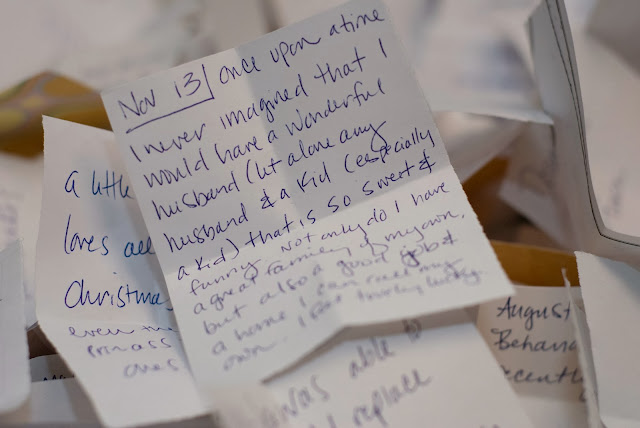 Nov 13 once upon a time
I never imagined that I
would have a wonderful
husband (let alone any
husband & a kid (especially
a kid) that is so sweet &
funny. Not only do I have
a great family of my own,
but also a good job &
a home I can call my
own. I feel lucky.
a little
loves all
Christmas
even
princess
ones
was able to
replace
August
Behand
recently